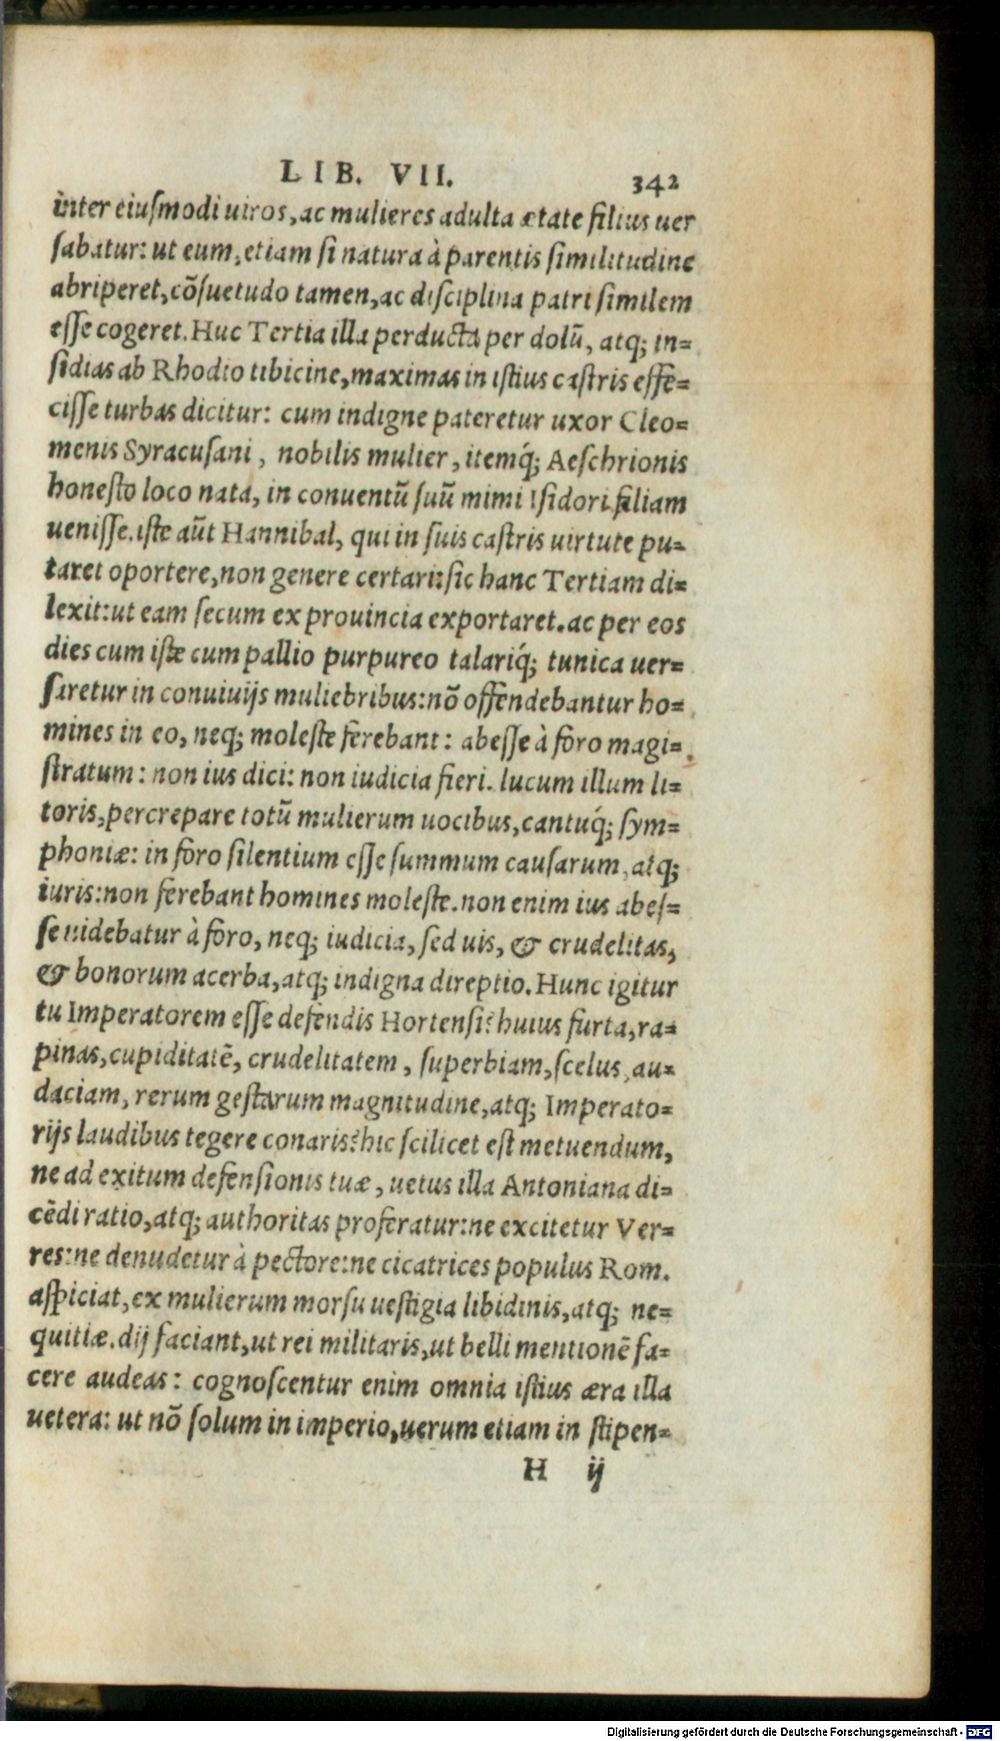 LIB. VII. 342
inter eiuſmodi uiros, ac mulieres adulta ætate filius uer
ſabatur: ut eum, etiam ſi natura à parentis ſimilitudine
abriperet, cõſuetudo tamen, ac diſciplina patri ſimilem
eſſe cogeret. Huc Tertia illa perducta per dolũ, atq; in=
ſidias ab Rhodio tibicine, maximas in iſtius caſtris effe=
ciſſe turbas dicitur: cum indigne pateretur uxor Cleo=
menis Syracuſani, nobilis mulier, itemq́; Aeſchrionis
honeſto loco nata, in conuentũ ſuũ mimi Iſidori filiam
ueniſſe. iſte aũt Hannibal, qui in ſuis caſtris uirtute pu=
taret oportere, non genere certari: ſic hanc Tertiam di=
lexit: ut eam ſecum ex prouincia exportaret. ac per eos
dies cum iſte cum pallio purpureo talariq́; tunica uer=
ſaretur in conuiuijs muliebribus: nõ offendebantur ho=
mines in eo, neq; moleſte ferebant: abeſſe à foro magi=
ſtratum: non ius dici: non iudicia fieri. lucum illum li=
toris, percrepare totũ mulierum uocibus, cantuq́; ſym=
phoniæ: in foro ſilentium eſſe ſummum cauſarum, atq;
iuris: non ferebant homines moleſte. non enim ius abeſ=
ſe uidebatur à foro, neq; iudicia, ſed uis, & crudelitas,
& bonorum acerba, atq; indigna direptio. Hunc igitur
tu Imperatorem eſſe defendis Hortenſi? huius furta, ra=
pinas, cupiditatẽ, crudelitatem, ſuperbiam, ſcelus, au=
daciam, rerum geſtarum magnitudine, atq; Imperato=
rijs laudibus tegere conaris? hic ſcilicet eſt metuendum,
ne ad exitum defenſionis tuæ, uetus illa Antoniana di=
cẽdi ratio, atq; authoritas proferatur: ne excitetur Ver=
res: ne denudetur à pectore: ne cicatrices populus Rom.
aſpiciat, ex mulierum morſu ueſtigia libidinis, atq; ne=
quitiæ. dij faciant, ut rei militaris, ut belli mentionẽ fa=
cere audeas: cognoſcentur enim omnia iſtius æra illa
uetera: ut nõ ſolum in imperio, uerum etiam in ſtipen=
H ij
Digitalisierung gefördert durch die Deutsche Forschungsgemeinschaft - DFG